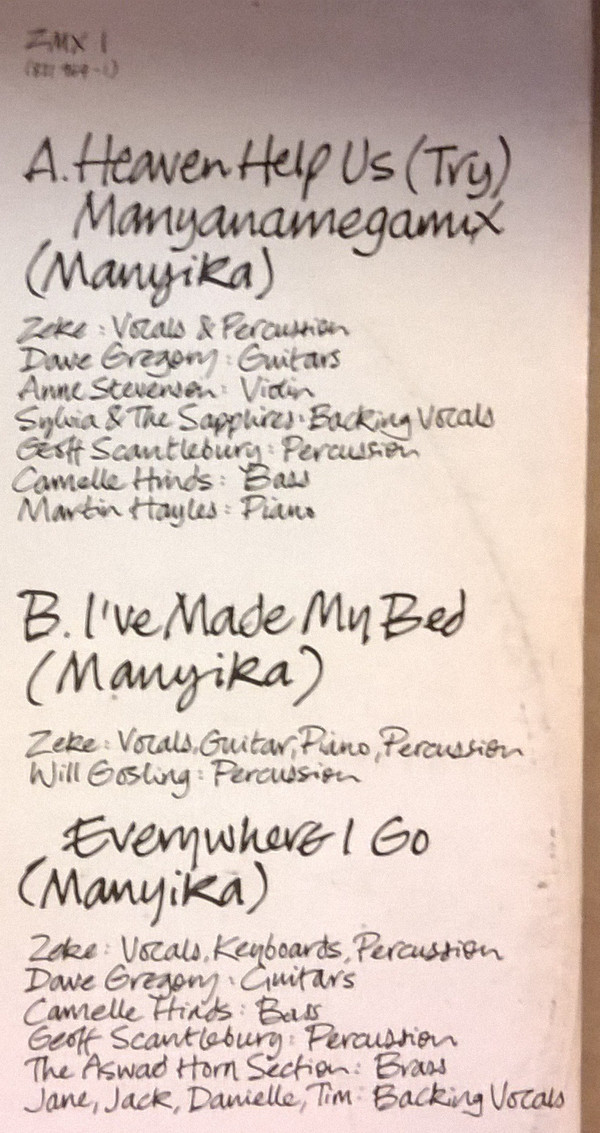 ZMX 1
A. Heaven Help Us (Try)
Manyanamegamix
(Manyika)
Zeke: Vocals & Percussion
Dave Gregory: Guitars
Anne Stevenson: Violin
Sylvia & The Sapphires: Backing Vocals
Geoff Scantlebury: Percussion
Camelle Hinds: Bass
Martin Hayles: Piano
B. I've Made My Bed
(Manyika)
Zeke: Vocals, Guitar, Piano, Percussion
Will Gosling: Percussion
Everywhere I Go
(Manyika)
Zeke: Vocals, Keyboards, Percussion
Dave Gregory: Guitars
Camelle Hinds: Bass
Geoff Scantlebury: Percussion
The Aswad Horn Section: Brass
Jane, Jack, Danielle, Tim: Backing Vocals